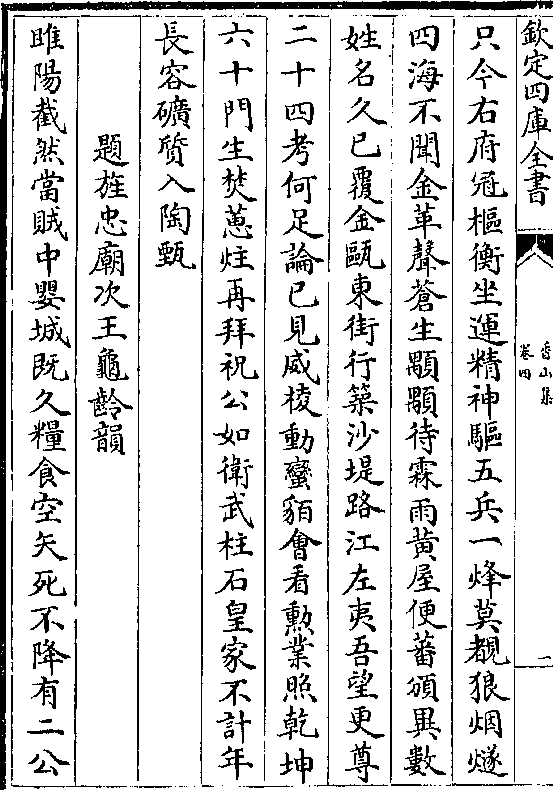 欽定四庫全書
香山集
卷四
一
只今右府冠樞衡坐運精神驅五兵一烽莫覩狼烟燧
四海不聞金革聲蒼生顒顒待霖雨黄屋便蕃頒異數
姓名久已覆金甌東街行築沙堤路江左夷吾望更尊
二十四考何足論已見威稜動蠻貊會看勲業照乾坤
六十門生焚蕙炷再拜祝公如衛武柱石皇家不計年
長容礦質入陶甄
題旌忠廟次王龜齡韻
睢陽截然當賊中嬰城既久糧食空矢死不降有二公